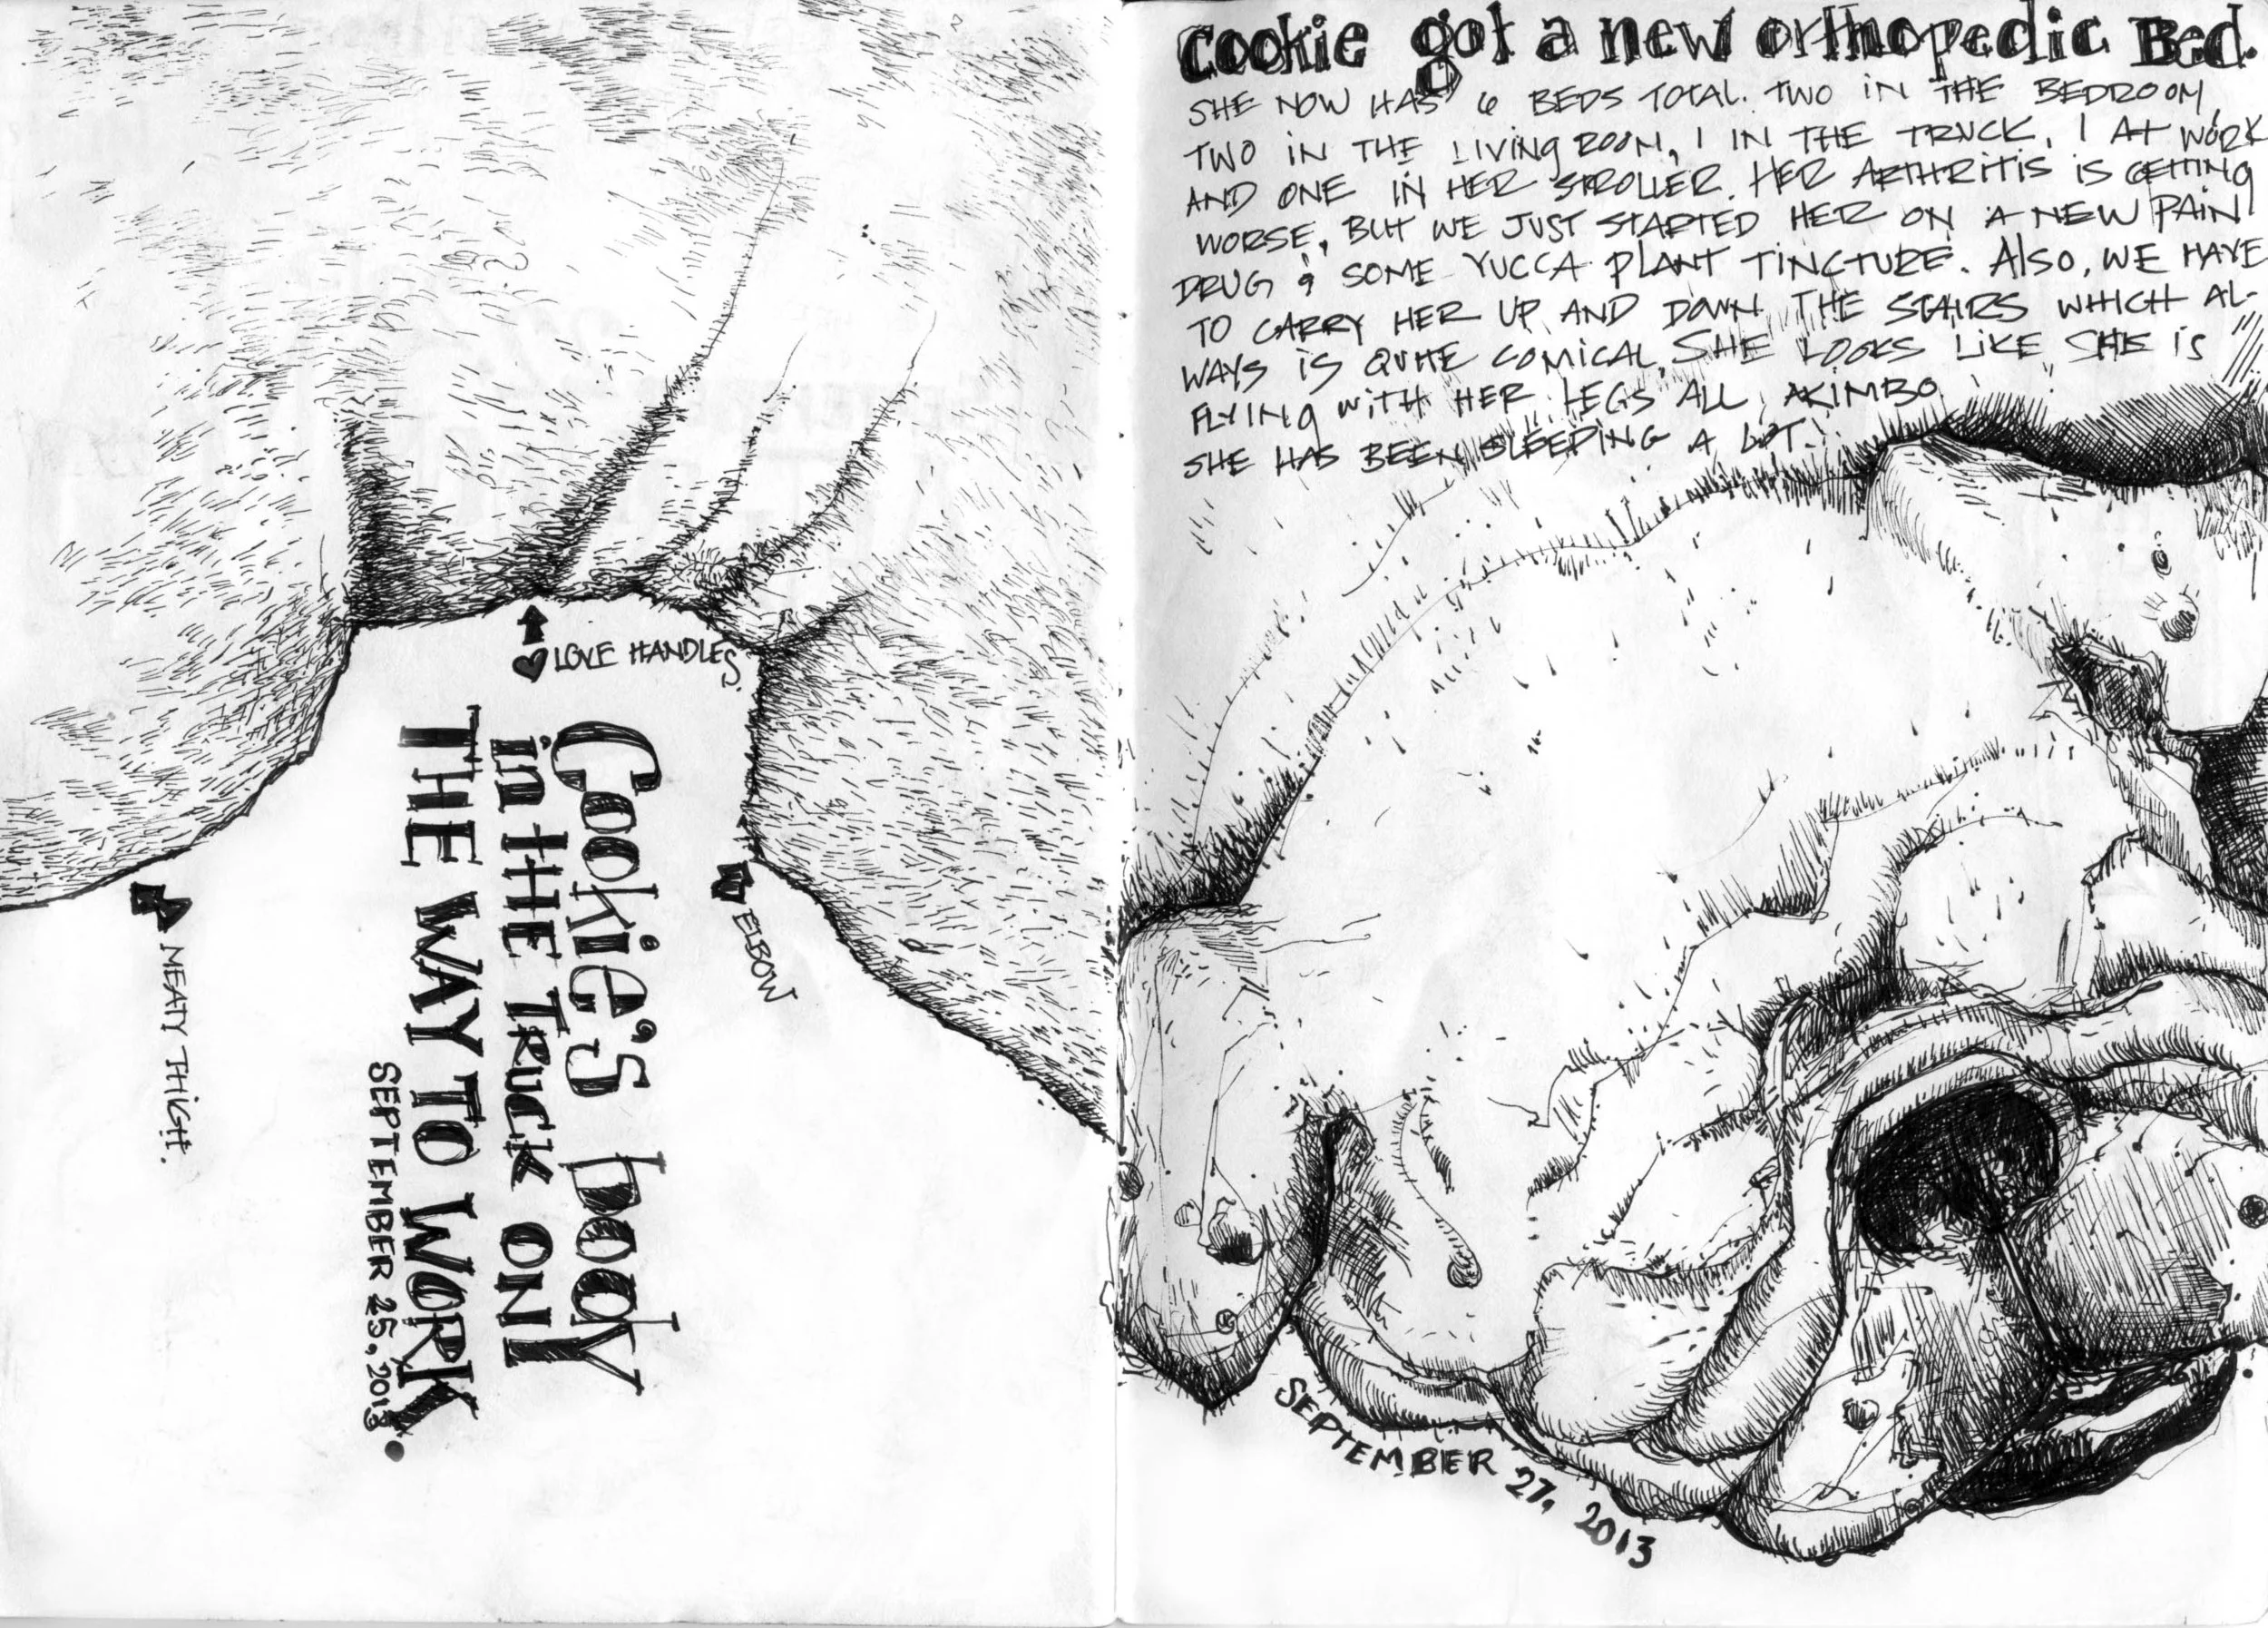 LOVE HANDLES.
Cookie's body
in THE TRUCK ON
THE WAY TO WORK
SEPTEMBER 25, 2013.
ELBOW
MEATY THIGH.
Cookie got a new orthopedic Bed.
SHE NOW HAS 6 BEDS TOTAL. TWO IN THE BEDROOM,
TWO IN THE LIVING ROOM, 1 IN THE TRUCK, 1 AT WORK
AND ONE IN HER STROLLER. HER ARTHRITIS IS GETTING
WORSE, BUT WE JUST STARTED HER ON A NEW PAIN
DRUG & SOME YUCCA PLANT TINCTURE. Also, WE HAVE
TO CARRY HER UP AND DOWN THE STAIRS WHICH AL-
WAYS IS QUITE COMICAL. SHE LOOKS LIKE SHE IS
FLYING WITH HER LEGS ALL AKIMBO.
SHE HAS BEEN SLEEPING A LOT.
SEPTEMBER 27, 2013